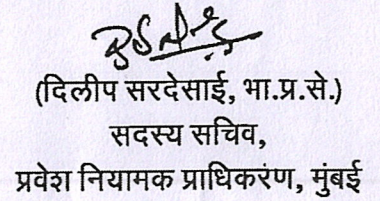 (दिलीप सरदेसाई, भा.प्र.से.)
सदस्य सचिव,
प्रवेश नियामक प्राधिकरंण, मुंबई